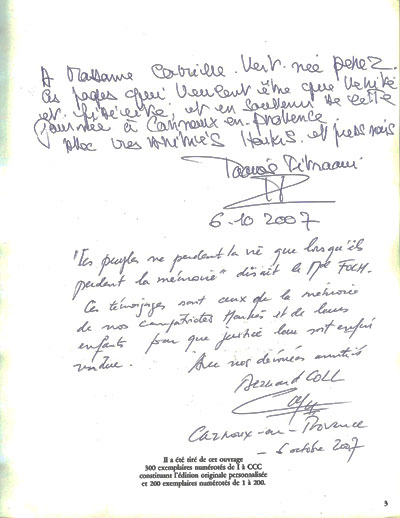 A Madame Gabrielle Vert née Perez.
Ces pages qui veulent être que vérité
et sincérité, et en souvenir de cette
journée à Carnoux en provence
avec mes Harkis et pieds noirs
6.10 2007
"Les peuples ne perdent la vie que lorsqu'ils
perdent la mémoire" disait le Mal FOCH.
Ces témoignages sont ceux de la mémoire
de nos compatriotes Harkis et de leurs
enfants pour que justice leur soit enfin
rendue. Avec nos dévouées amitiés
Bernard COLL
Carnoux-en-Provence
6 octobre 2007
Il a été tiré de cet ouvrage
300 exemplaires numérotés de I à CCC
constituant l'édition originale personnalisée
et 200 exemplaires numérotés de 1 à 200.
3